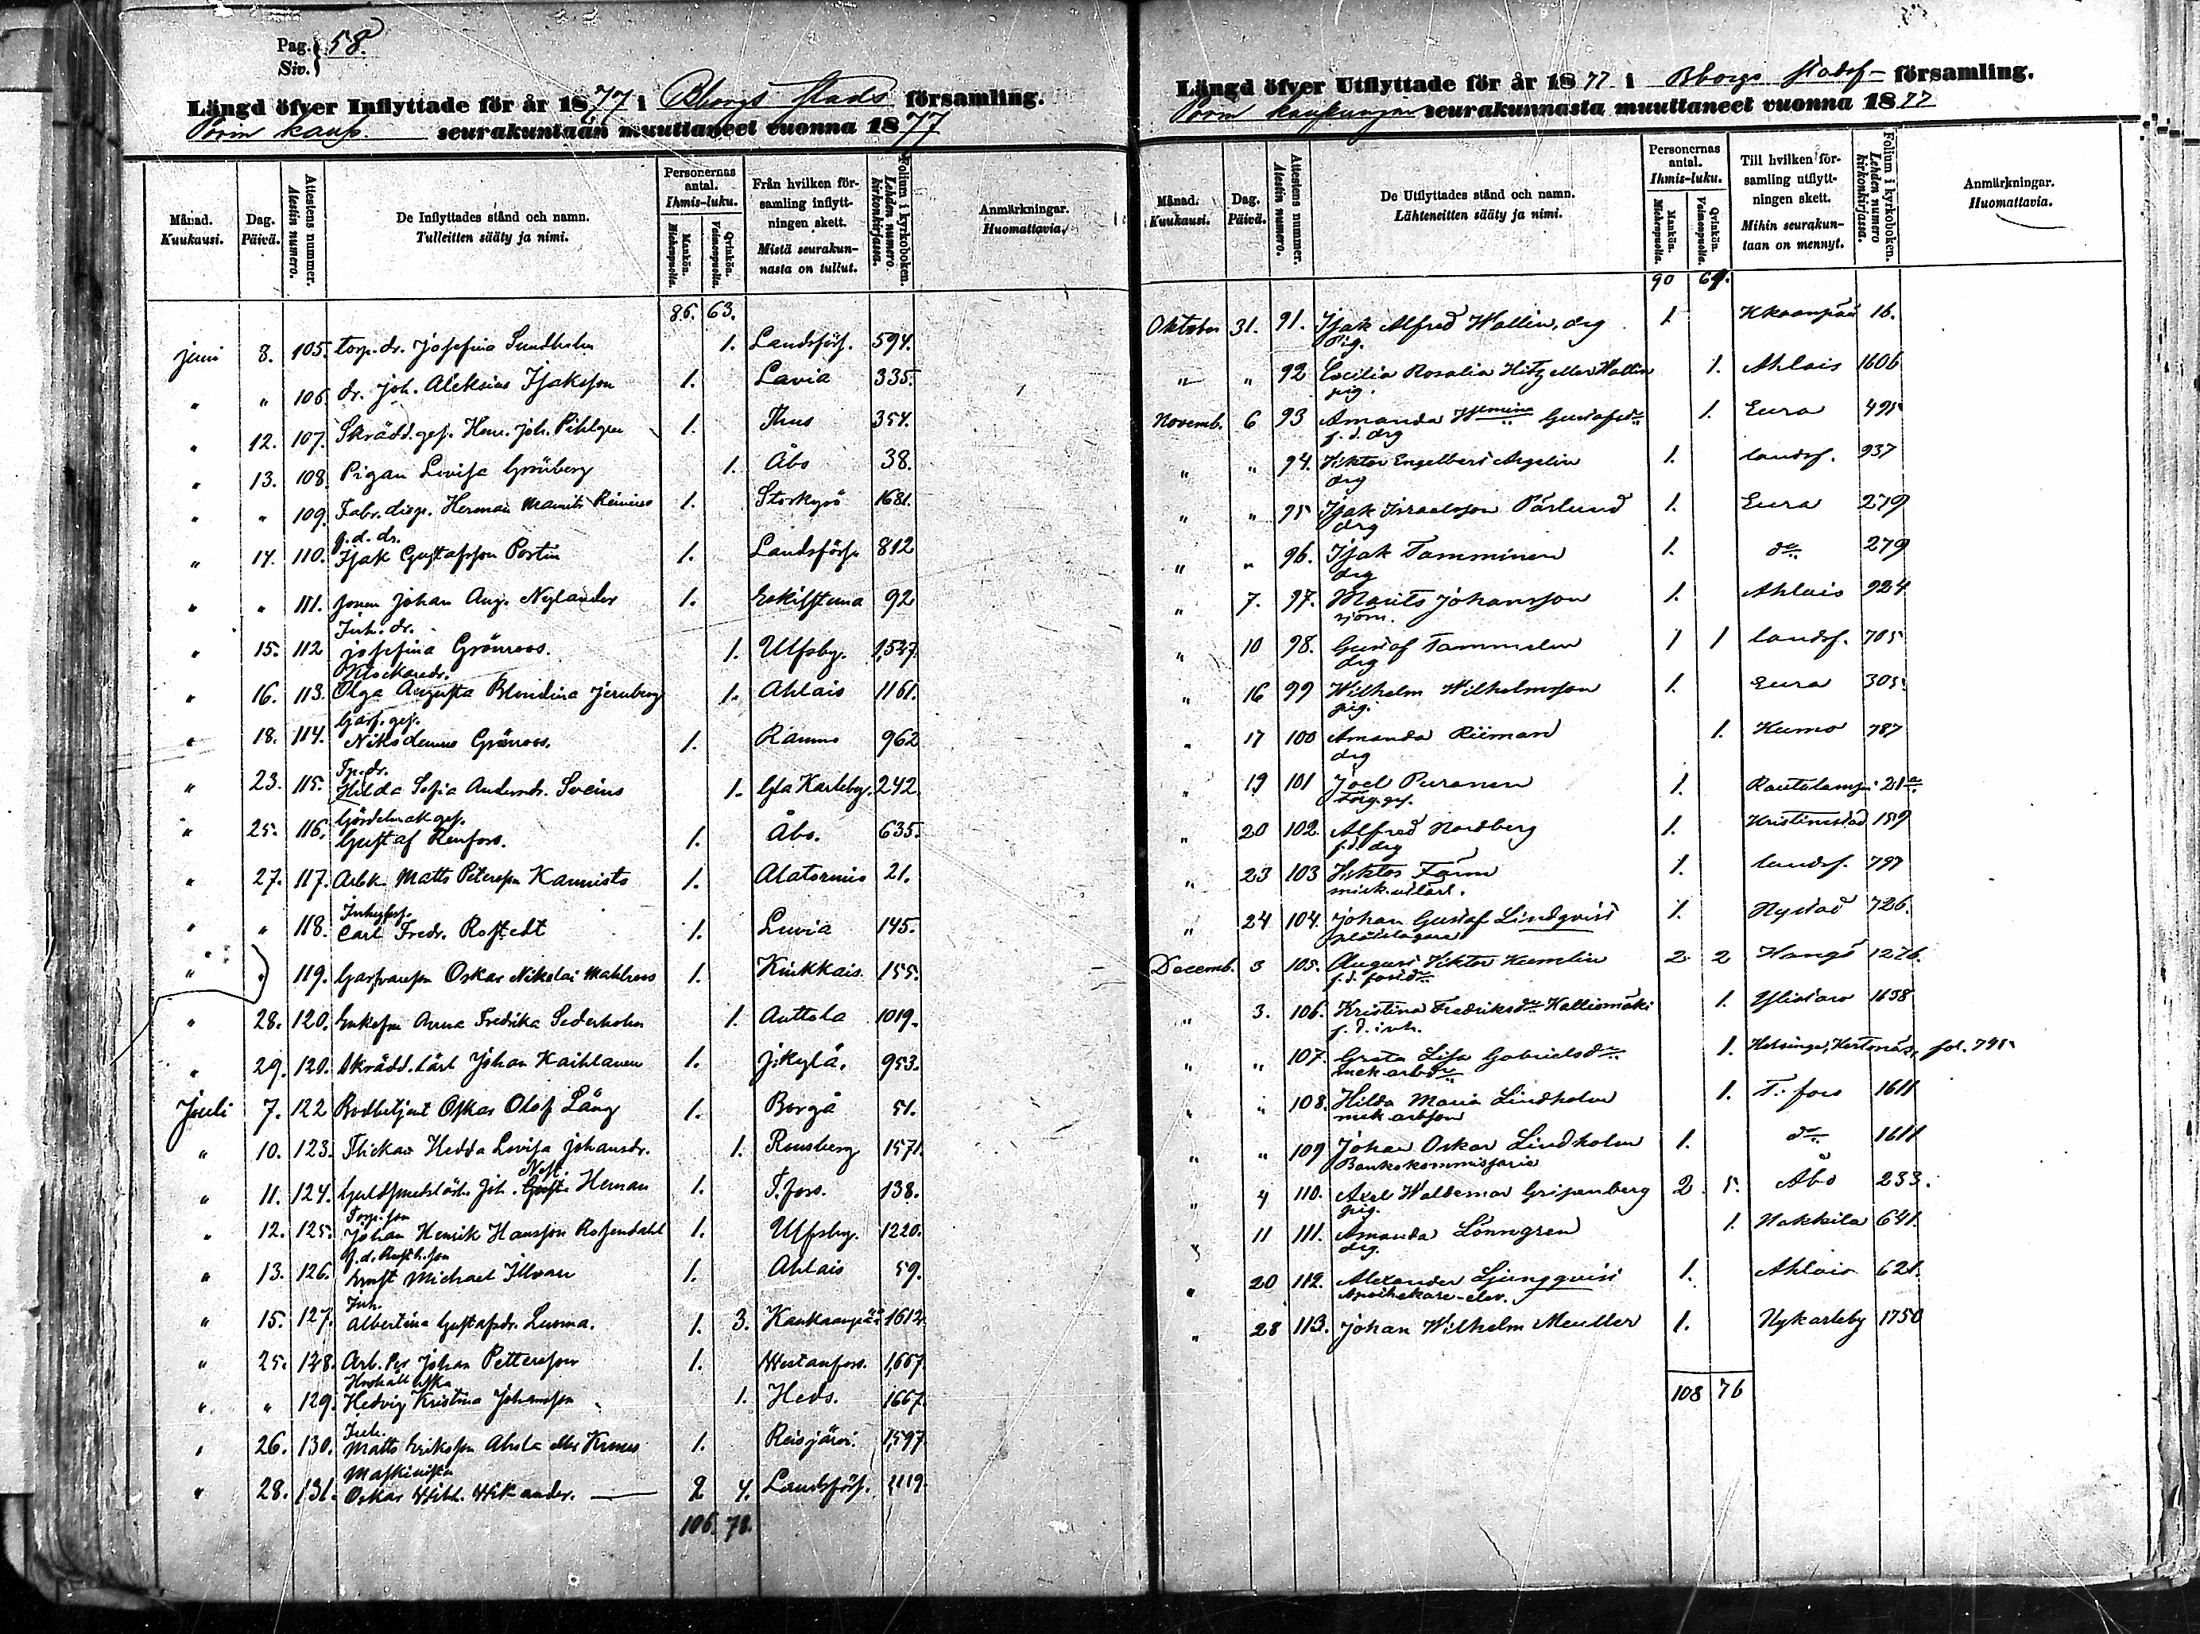 Pag. 58.
Siv.
Längd öfver Inflyttade för år 1877 i Bborgs stads församling.
Porin kaup. seurakuntaan muuttaneet vuonna 1877
Månad. Kuukausi.
Dag. Päivä.
Attestens nummer. Atestin numero.
De Inflyttades stånd och namn. Tulleitten sääty ja nimi.
Personernas antal. Ihmis-luku.
Mankön. Miehenpuolta.
Qvinkön. Vaimonpuolta.
Från hvilken församling inflyttningen skett. Mistä seurakunnasta on tullut.
Folium i kyrkoboken. Lehden numero kirkonkirjassa.
Anmärkningar. Huomattavia.
86. 63.
Juni 8. 105. torp.dr. Josefina Sundholm 1. Landsförs. 594.
" " 106. dr. Joh. Aleksius Isaksson 1. Lavia 335.
" 12. 107. Skrädd.ges. Henr. Joh. Pihlgren 1. Thus 354.
" 13. 108. Pigan Lovisa Grönberg 1. Åbo 38.
" " 109. Fabr.disp. Herman Reinius 1. Storkyrö 1681.
f.d. dr.
" 14. 110. Isak Gustafsson Portin 1. Landsförs. 812
" " 111. Johan Aug. Nylander 1. Eskilstuna 92
Inh. dr.
" 15. 112 Josefina Grönroos. 1. Ulfsby. 1,527.
Klockaredr.
" 16. 113. Olga Augusta Blondina Jernberg 1. Ahlais 1161.
Garf.ges.
" 18. 114. Nikodemus Grönroos. 1. Raumo 962
Tp.dr.
" 23. 115. Hilda Sofia Andersdr. Sveins 1. Gla Karleby. 242.
Gördelmak.ges.
" 25. 116. Gustaf Renfors. 1. Åbo. 635.
" 27. 117. Arbk. Matts Petersson Kannisto 1. Alatornio 21.
" " 118. Carl Fredr. Rostedt 1. Luvia 145.
" " 119. Oskar Nikolai Mahlroos 1. Kiukkais. 155.
" 28. 120. Enkefru Anna Fredrika Sederholm 1. Anttola 1019.
" 29. 120. Skrädd.lärl. Johan Kaihlanen 1. Jikylä. 953.
Juli 7. 122 Bodbetjent Oskar Olof Lång 1. Borgå 51.
" 10. 123. Flickan Hedda Lovisa Johansdr. 1. Rensberg 1571.
" 11. 124. Guldsmedslärl. Joh. Herman 1. T.fors. 138.
Torp.son
" 12. 125. Johan Henrik Hansson Rosendahl 1. Ulfsby. 1220.
f.d. Rusth.son
" 13. 126. Ernst Michael Illvan 1. Ahlais 59.
Inh.
" 15. 127. Albertina Gustafsdr. Lusma. 1. 3. Kankaanpää 1612.
" 25. 128. Arb. Per Johan Pettersson 1. Westanfors. 1,667.
" " 129. Hedvig Kristina Johansson 1. Heds. 1667.
Inh.
" 26. 130. Matts Eriksson Ahola eller Krmes 1. Reisjärvi. 1,597.
Maskinisten
" 28. 131. Oskar Wilh. Wikander. 2 4. Landsförs. 1119.
106. 78.
Längd öfver Utflyttade för år 1877 i Bborgs stads- församling.
Porin kaupungin seurakunnasta muuttaneet vuonna 1877
Månad. Kuukausi.
Dag. Päivä.
Attestens nummer. Atestin numero.
De Utflyttades stånd och namn. Lähteneitten sääty ja nimi.
Personernas antal. Ihmis-luku.
Mankön. Miehenpuolta.
Qvinkön. Vaimonpuolta.
Till hvilken församling utflyttningen skett. Mihin seurakuntaan on mennyt.
Folium i kyrkoboken. Lehden numero kirkonkirjassa.
Anmärkningar. Huomattavia.
90 64.
Oktober 31. 91. Isak Alfred Wallin, drg 1. Kkaanpää 16.
pig.
" " 92 Cecilia Rosalia Hitz eller Wallin 1. Ahlais 1606
pig.
Novemb. 6 93 Amanda Wilhelmina Gustafsdr 1. Eura 495
f.d. drg
" " 94. Viktor Engelbert Argelin 1. landsf. 937
drg
" " 95 Isak Israelsson Pärlund 1. Eura 279
drg
" " 96. Isak Tamminen 1. do 279
drg
" 7. 97. Maurits Johansson 1. Ahlais 924
sjöm.
" 10 98. Gustaf Tammelin 1 1 landsf. 705
drg
" 16 99 Wilhelm Wilhelmsson 1. Eura 305
pig.
" 17 100 Amanda Riiman 1. Kumo 787
drg
" 19 101 Joel Puranen 1. Rautalampi 21
" 20 102. Alfred Nordberg 1. Kristinestad 159
f.d. drg
" 23 103 Viktor Färm 1. landsf. 797
" 24 104. Johan Gustaf Lindqvist 1. Nystad 726.
plåtslagare
Decemb. 3 105. August Viktor Kumlin 2 2 Hangö 1276.
" 3. 106. Kristina Fredriksdr Kalliomäki 1. Ylistaro 1658
f.d. inh.
" " 107. Greta Lisa Gabrielsdr 1. Helsinge, Hertonäs, fol. 795
" " 108. Hilda Maria Lindholm 1. T:fors 1611
" " 109 Johan Oskar Lindholm 1. do 1611
Bankokommissarie
" 4 110. Axel Waldemar Gripenberg 2. 5. Åbo 233.
pig.
" 11 111. Amanda Lönngren 1. Nakkila 641.
drg.
" 20 112. Alexander Ljungqvist 1. Ahlais 621.
Apothekare-elev.
" 28 113. Johan Wilhelm Meuller 1. Nykarleby 1750
108 76